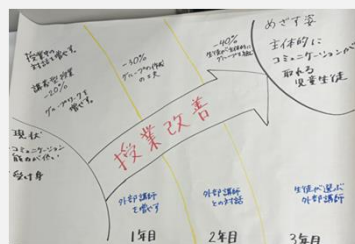 授業中の
対話を増やす。
講義型授業
-20%
グループワークを
増やす。
-30%
グループの作成
の工夫
-40%
めざす姿
主体的に
コミュニケーションが
取れる
児童生徒
現状
コミュニケーション
能力が低い
受け身
授業改善
外部講師
を増やす
1年目
外部講師
との対話
2年目
生徒が選ぶ
外部講師
3年目